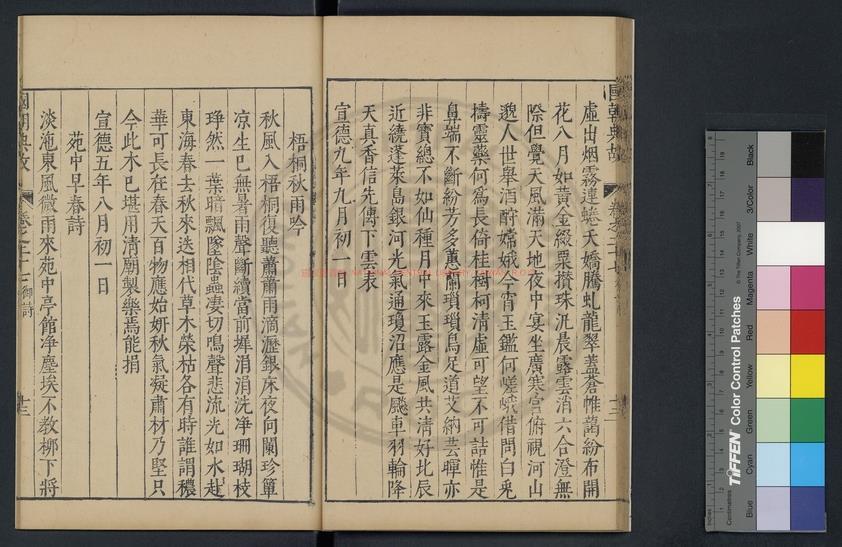 國朝典故 卷之二十七
虛出烟霧連蜷夭嬌騰虬龍翠蓋蒼帷藹紛布開
花八月如黃金綴粟攢珠汎晨露雲消六合澄無
際但覺天風滿天地夜中宴坐廣寒宮俯視河山
邈人世舉酒酹嫦娥今宵玉鑑何嵯峨借問白兎
擣靈藥何爲長倚桂樹柯清虛可望不可詰惟是
鼻端不斷紛芳多蕙蘭瑣瑣烏足道艾納芸暉亦
非實總不如仙種月中來玉露金風共清好比辰
近繞蓬萊島銀河光氣通瓊沼應是飈車羽輪降
天真香信先傳下雲表
宣德九年九月初一日
梧桐秋雨吟
秋風入梧桐復聽蕭蕭雨滴瀝銀床夜向闌珍簟
凉生已無暑雨聲斷續當前墀涓涓洗净珊瑚枝
琤然一葉暗飄墜陰蟲凄切鳴聲悲流光如水赴
東海春去秋來送相代草木榮枯各有時誰謂穠
華可長在春天百物應始姸秋氣凝肅材乃堅只
今此木已堪用清廟製樂焉能捐
宣德五年八月初一日
苑中早春詩
淡沲東風微雨來苑中亭館净塵埃不教柳下將
國朝典故 卷之二十七 御詩 十三
Black
3/Color
White
Magenta
Red
Yellow
Green
Cyan
Blue
TIFFEN Color Control Patches
© The Tiffen Company, 2007
Centimetres
Inches